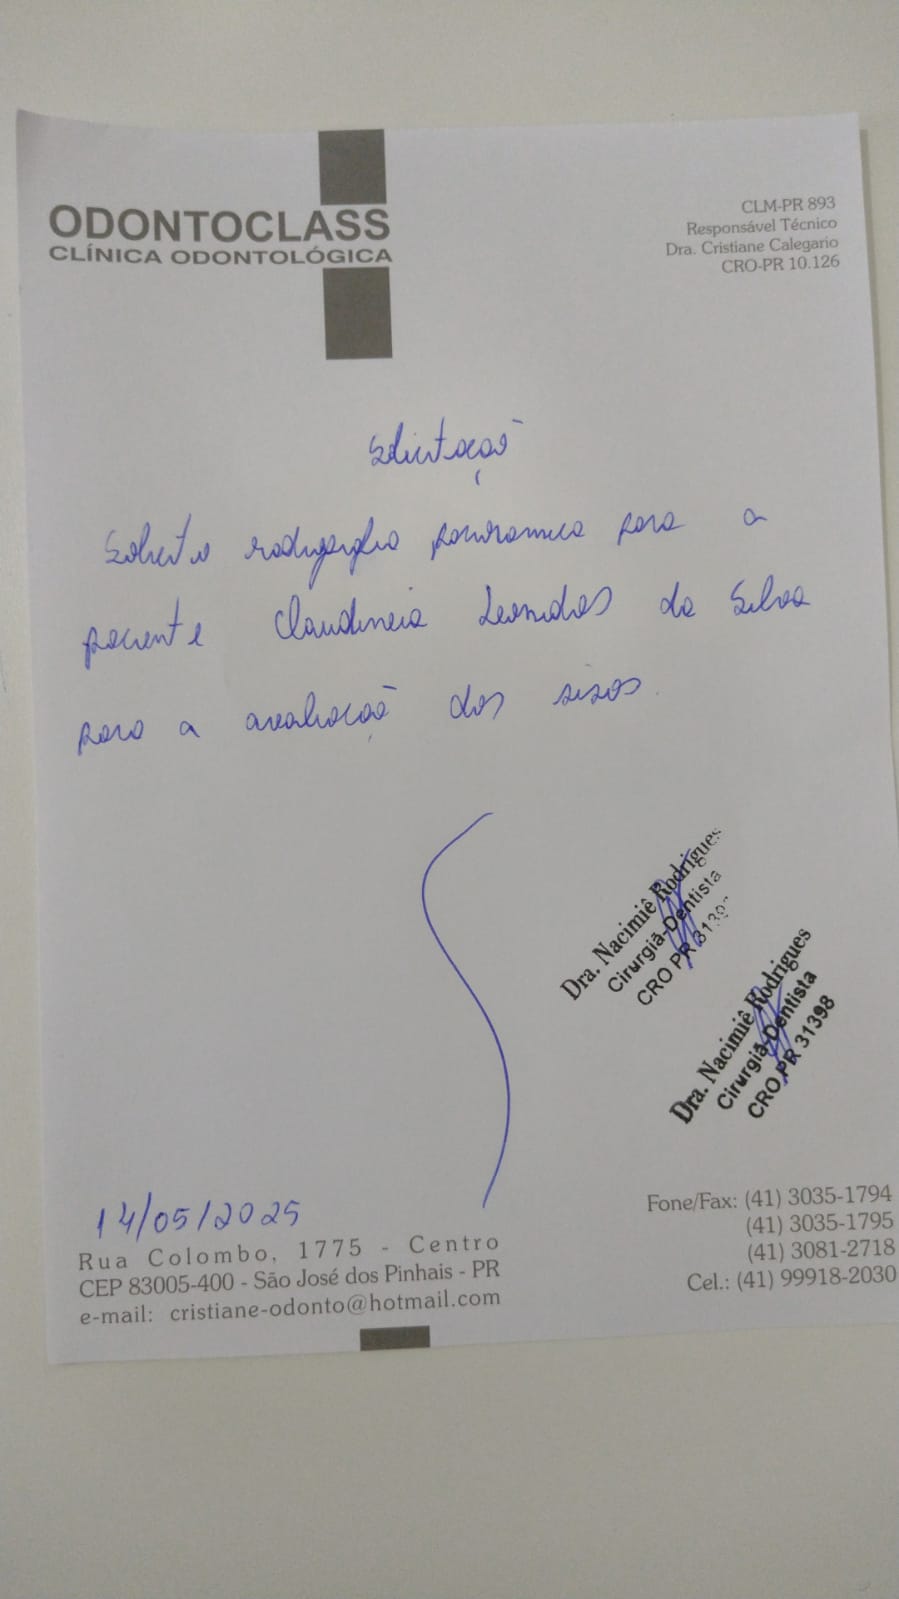 ODONTOCLASS
CLÍNICA ODONTOLÓGICA
CLM-PR 893
Responsável Técnico
Dra. Cristiane Calegario
CRO-PR 10.126
Solicitação
Solicito radiografia panoramica para a
paciente Claudineia Leonidas da Silva
para a avaliação dos sisos.
Dra. Nacimiê Rodrigues
Cirurgiã-Dentista
CRO PR 3139
Dra. Nacimiê Rodrigues
Cirurgiã-Dentista
CRO PR 31398
14/05/2025
Rua Colombo, 1775 - Centro
CEP 83005-400 - São José dos Pinhais - PR
e-mail: cristiane-odonto@hotmail.com
Fone/Fax: (41) 3035-1794
(41) 3035-1795
(41) 3081-2718
Cel.: (41) 99918-2030